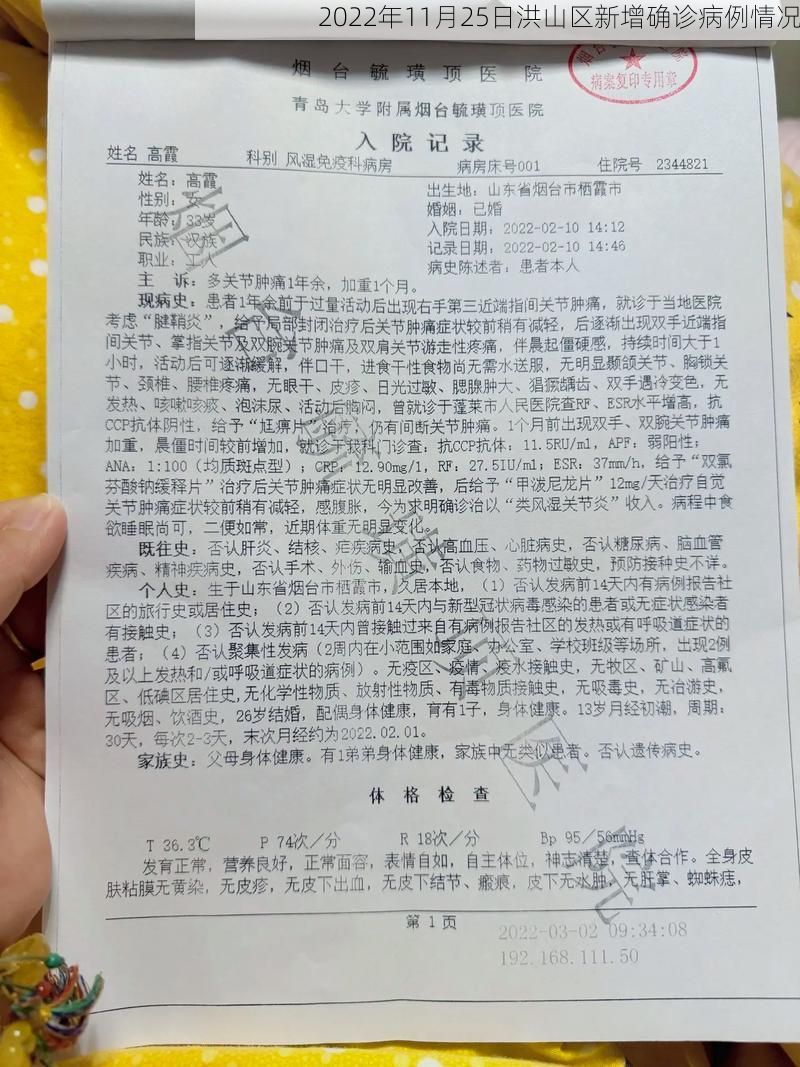 2022年11月25日洪山区新增确诊病例情况
烟台毓璜顶医院
病案复印专用章
青岛大学附属烟台毓璜顶医院
入院记录
姓名 高霞 科别 风湿免疫科病房 病房床号001 住院号 2344821
姓名：高霞 出生地：山东省烟台市栖霞市
性别：女 婚姻：已婚
年龄：33岁 入院日期：2022-02-10 14:12
民族：汉族 记录日期：2022-02-10 14:46
职业：工人 病史陈述者：患者本人
主 诉：多关节肿痛1年余，加重1个月。
现病史：患者1年余前于过量活动后出现右手第三近端指间关节肿痛，就诊于当地医院
考虑“腱鞘炎”，给予局部封闭治疗后关节肿痛症状较前稍有减轻，后逐渐出现双手近端指
间关节、掌指关节及双腕关节肿痛及双肩关节游走性疼痛，伴晨起僵硬感，持续时间大于1
小时，活动后可逐渐缓解，伴口干，进食干性食物尚无需水送服，无明显颞颌关节、胸锁关
节、颈椎、腰椎疼痛，无眼干、皮疹、日光过敏、腮腺肿大、猖獗龋齿、双手遇冷变色，无
发热、咳嗽咳痰、泡沫尿、活动后胸闷，曾就诊于蓬莱市人民医院查RF、ESR水平增高，抗
CCP抗体阴性，给予“尪痹片”治疗，仍有间断关节肿痛。1个月前出现双手、双腕关节肿痛
加重，晨僵时间较前增加，就诊于我科门诊查：抗CCP抗体：11.5RU/ml，APF：弱阳性；
ANA：1:100（均质斑点型）；CRP：12.90mg/l，RF：27.5IU/ml；ESR：37mm/h，给予“双氯
芬酸钠缓释片”治疗后关节肿痛症状无明显改善，后给予“甲泼尼龙片”12mg/天治疗自觉
关节肿痛症状较前稍有减轻，感腹胀，今为求明确诊治以“类风湿关节炎”收入。病程中食
欲睡眠尚可，二便如常，近期体重无明显变化。
既往史：否认肝炎、结核、疟疾病史，否认高血压、心脏病史，否认糖尿病、脑血管
疾病、精神疾病史，否认手术、外伤、输血史，否认食物、药物过敏史，预防接种史不详。
个人史：生于山东省烟台市栖霞市，久居本地，（1）否认发病前14天内有病例报告社
区的旅行史或居住史；（2）否认发病前14天内与新型冠状病毒感染的患者或无症状感染者
有接触史；（3）否认发病前14天内曾接触过来自有病例报告社区的发热或有呼吸道症状的
患者；（4）否认聚集性发病（2周内在小范围如家庭、办公室、学校班级等场所，出现2例
及以上发热和/或呼吸道症状的病例）。无疫区、疫情、疫水接触史，无牧区、矿山、高氟
区、低碘区居住史,无化学性物质、放射性物质、有毒物质接触史，无吸毒史，无冶游史，
无吸烟、饮酒史，26岁结婚，配偶身体健康，育有1子，身体健康。13岁月经初潮，周期：
30天，每次2-3天，末次月经约为2022.02.01。
家族史：父母身体健康。有1弟弟身体健康，家族中无类似患者。否认遗传病史。
体格检查
T 36.3℃ P 74次／分 R 18次／分 Bp 95／56mmHg
发育正常，营养良好，正常面容，表情自如，自主体位，神志清楚，查体合作。全身皮
肤粘膜无黄染，无皮疹，无皮下出血，无皮下结节、瘢痕，皮下无水肿，无肝掌、蜘蛛痣，
第 1 页
2022-03-02 09:34:08
192.168.111.50